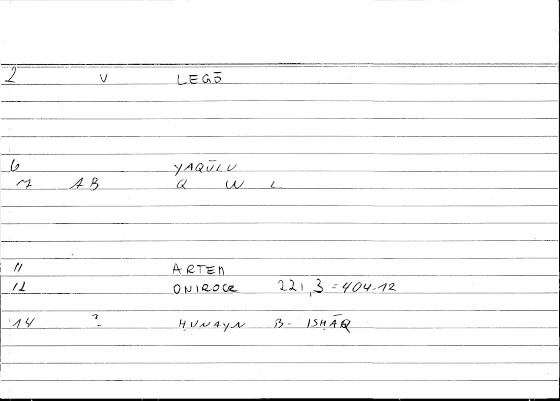 2 V LEGŌ
6 YAQŪLU
7 AB Q W L
11 ARTEM
12 ONIROCR 221,3 = 404.12
14 ? ḤUNAYN B- ISḤĀQ